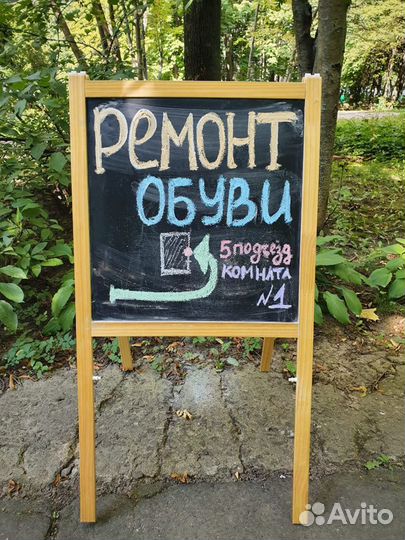 РЕМОНТ
ОБУВИ
5 подъезд
КОМНАТА
№1
Avito